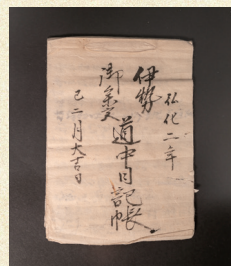 弘化二年
伊勢
御参 道中日記帳
巳二月大吉日